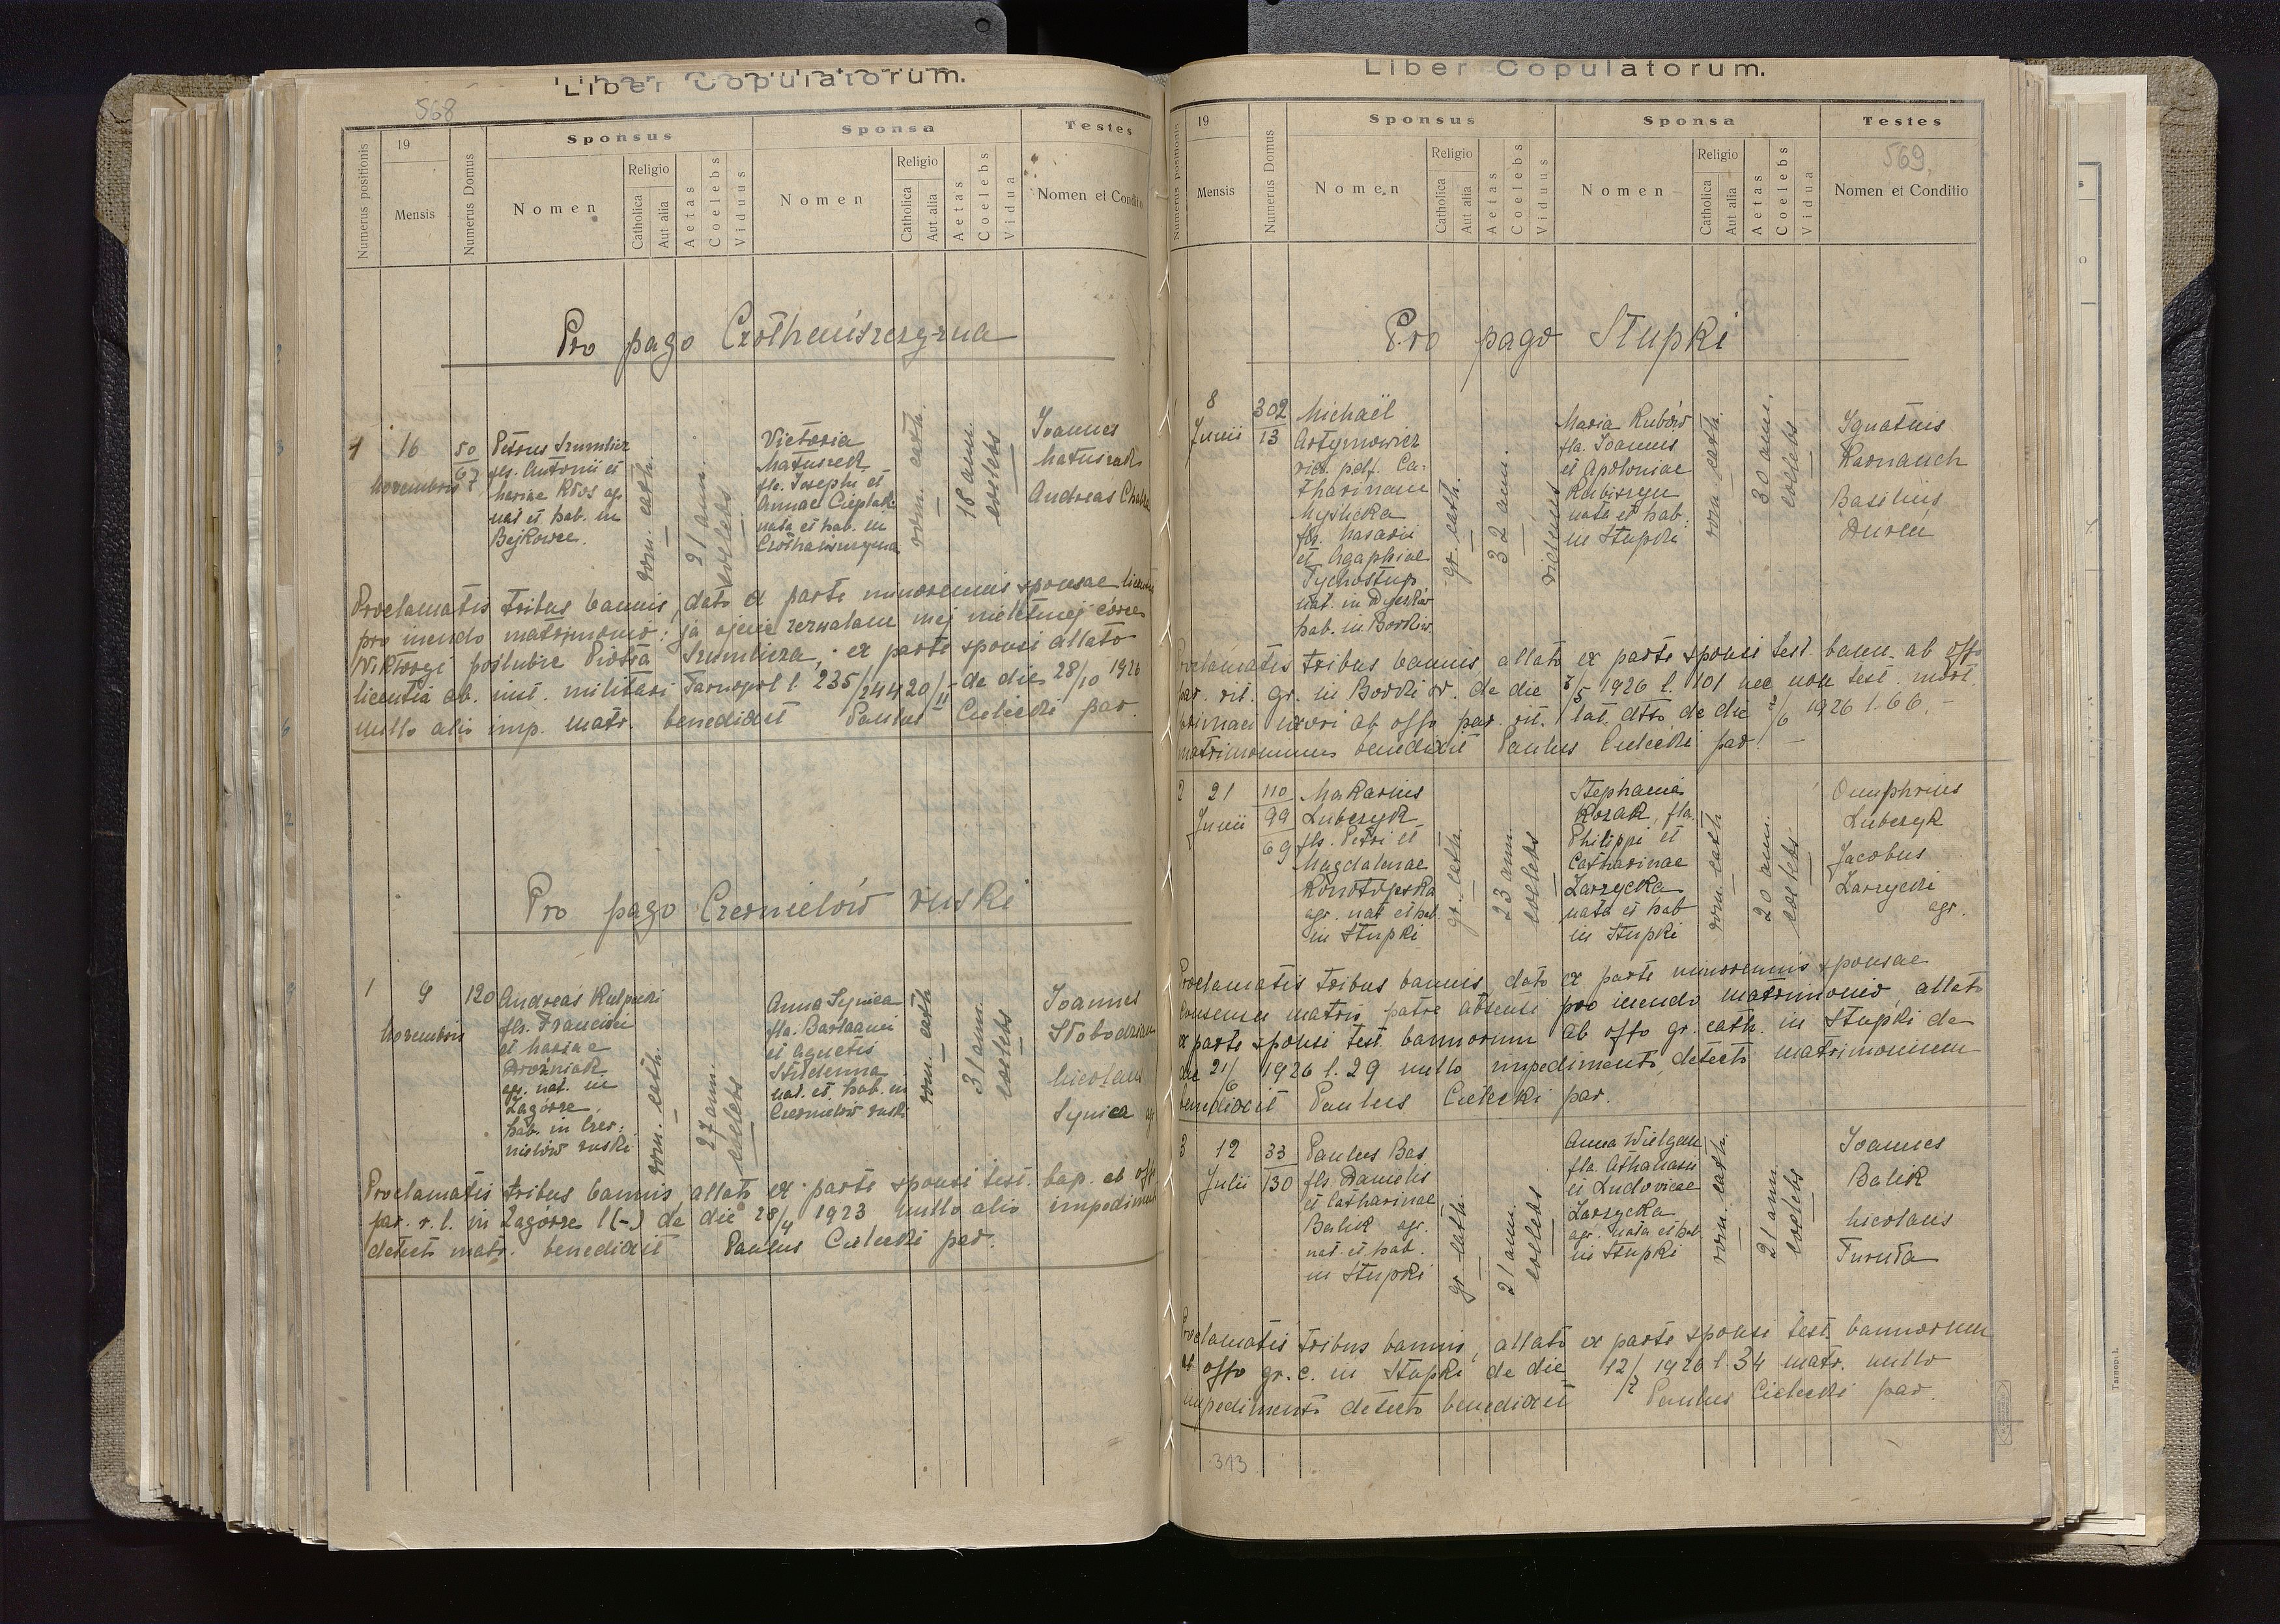 Liber Copulatorum.
568
Numerus positionis
19
Mensis
Numerus Domus
Sponsus
Nomen
Religio
Catholica
Aut alia
Aetas
Coelebs
Viduus
Sponsa
Nomen
Religio
Catholica
Aut alia
Aetas
Coelebs
Vidua
Testes
Nomen et Conditio
Pro pago
1
16
novembris
50
67
Petrus Szumlicz
fls. Antonii et
Mariae Kłos agr.
nat et hab. in
Bejkowce.
rom. cath.
21 ann.
coelebs
Victoria
Matuszek
fla. Josephi et
Annae Cieplak
nata et hab. in
rom. cath.
18 ann.
coelebs
Joannes
Matuszak
Andreas
Proclamatis tribus bannis, dato ex parte minorennis sponsae
pro ineundo matrimonio: ja ojciec zezwalam mej nieletniej córce
Wiktorji poślubić Piotra Szumlicza, ex parte sponsi allato
licentia ab. inst. militari Tarnopol l. 235/ 24420/II de die 28/10 1926
nullo alio imp. matr. benedixit Paulus Cielecki par.
Pro pago Czernielów ruski
1
9
novembris
120
Andreas Kulpicki
fls. Francisci
et Mariae
Woźniak
agr. nat. in
Zagórze
hab. in Czer:
nielów ruski
rom. cath.
27 ann.
coelebs
Anna Synica
fla.
et Agnetis
Studenna
nat. et hab. in
Czernielów ruski
rom. cath
31 ann.
coelebs
Joannes
Słobodzian
Nicolaus
Synica agr
Proclamatis tribus bannis, allato ex parte sponsi test. bap. ab offo
par. r. l. in Zagórze l(-) de die 28/4 1923 nullo alio impedimento
detecto matr. benedixit Paulus Cielecki par.
Liber Copulatorum.
569.
Numerus positionis
19
Mensis
Numerus Domus
Sponsus
Nomen
Religio
Catholica
Aut alia
Aetas
Coelebs
Viduus
Sponsa
Nomen
Religio
Catholica
Aut alia
Aetas
Coelebs
Vidua
Testes
Nomen et Conditio
Pro pago Stupki
8
Junii
302
13
Michaël
Artymowicz
vid. p. def. Ca-
tharinam
fls. Nasarii
et Agaphiae
Tychostup
nat. in
hab. in Borkiw.
gr. cath.
32 ann.
viduus
Maria Rubów
fla. Joannis
et Apoloniae
Rubiszyn
nata et hab.
in Stupki
rom. cath.
30 ann.
coelebs
Ignatius
Karnauch
Basilius
Dureń
Proclamatis tribus bannis allato ex parte sponsi test. bann. ab offo
par. rit. gr. in Borki w. de die /5 1926 l. 101 nec non test. mort.
primae uxori ab offo par. rit. lat. dtto de die /6 1926 l. 66.-
matrimonium benedixit Paulus Cielecki par.
2
21
Junii
110
99
69
Makarius
Lubczyk
fls. Petri et
Magdalenae
Konotopska
agr. nat et hab.
in Stupki
gr. cath.
23 ann.
coelebs
Stephania
Kozak, fla.
Philippi et
Catharinae
Zarzycka
nata et hab
in Stupki
rom. cath
20 ann.
coelebs
Onuphrius
Lubczyk
Jacobus
Zarzycki
agr.
Proclamatis tribus bannis, dato ex parte minorennis sponsae
consensu matris, patre absensi pro ineundo matrimonio, allato
ex parte sponsi test. bannorum ab offo gr. cath. in Stupki de
die 21/6 1926 l. 29 nullo impedimento detecto matrimonium
benedixit Paulus Cielecki par.
3
12
Julii
33
130
Paulus Bas
fls. Danielis
et Catharinae
Balik agr.
nat. et hab.
in Stupki
gr. cath.
21 ann.
coelebs
Anna Wielgan
fla. Athanasii
et Ludovicae
Zarzycka
agr. nata et hab.
in Stupki
rom. cath.
21 ann.
coelebs
Joannes
Balik
Nicolaus
Furuta
Proclamatis tribus bannis, allato ex parte sponsi test. bannorum
ab offo gr. c. in Stupki de die 12/7 1926 l. 34 matr. nullo
impedimento detecto benedixit Paulus Cielecki par.
313